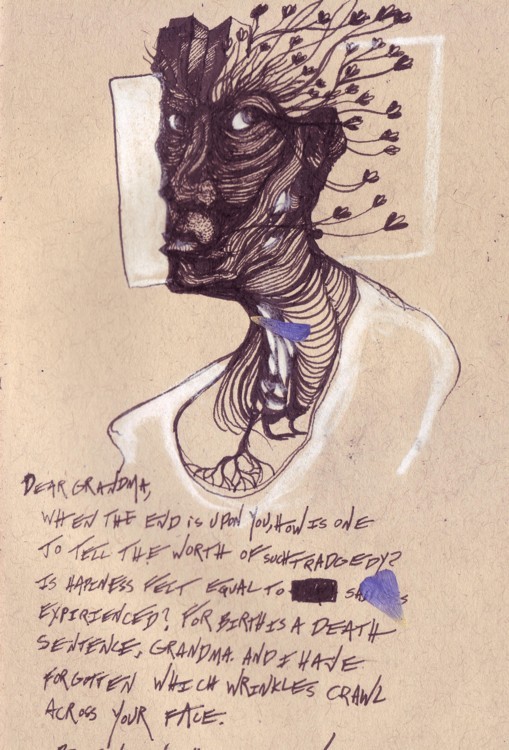 DEAR GRANDMA,
WHEN THE END IS UPON YOU, HOW IS ONE
TO TELL THE WORTH OF SUCH TRADGEDY?
IS HAPINESS FELT EQUAL TO
EXPIRIENCED? FOR BIRTH IS A DEATH
SENTENCE, GRANDMA. AND I HAVE
FORGOTTEN WHICH WRINKLES CRAWL
ACROSS YOUR FACE.